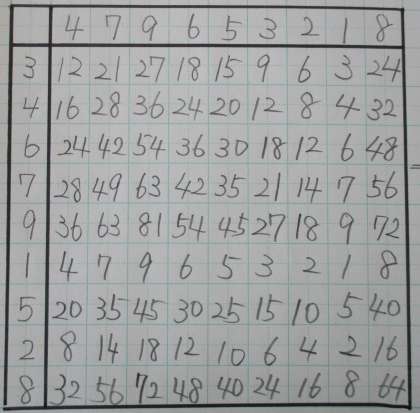 4 7 9 6 5 3 2 1 8
3 12 21 27 18 15 9 6 3 24
4 16 28 36 24 20 12 8 4 32
6 24 42 54 36 30 18 12 6 48
7 28 49 63 42 35 21 14 7 56
9 36 63 81 54 45 27 18 9 72
1 4 7 9 6 5 3 2 1 8
5 20 35 45 30 25 15 10 5 40
2 8 14 18 12 10 6 4 2 16
8 32 56 72 48 40 24 16 8 64